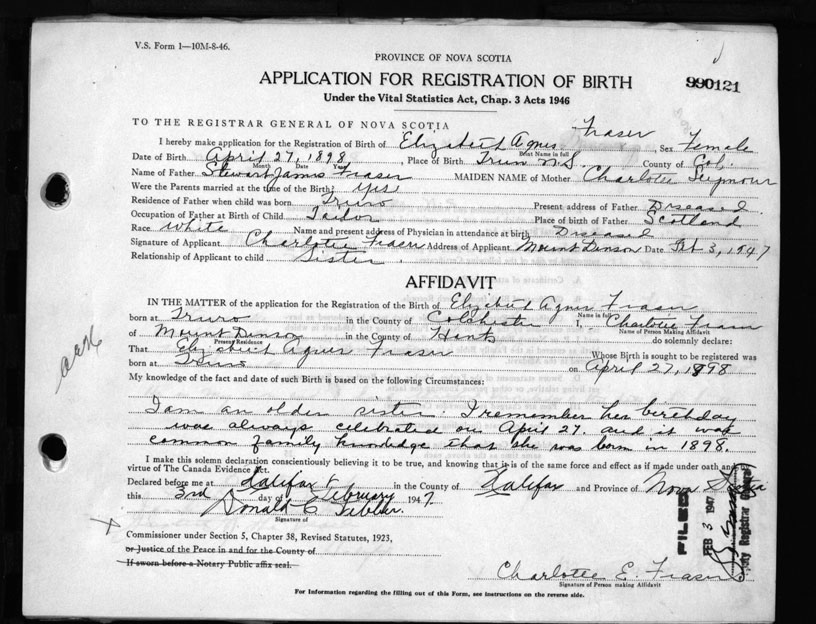 V.S. Form 1—10M-8-46.
PROVINCE OF NOVA SCOTIA
APPLICATION FOR REGISTRATION OF BIRTH
990121
Under the Vital Statistics Act, Chap. 3 Acts 1946
TO THE REGISTRAR GENERAL OF NOVA SCOTIA
I hereby make application for the Registration of Birth of Elizabeth Agnes Fraser, Sex Female
Name in full
Date of Birth April 27, 1898, Place of Birth Truro N.S. County of Col.
Month Date Year
Name of Father Stewart James Fraser MAIDEN NAME of Mother Charlotte Seymour
Were the Parents married at the time of the Birth; yes
Residence of Father when child was born Truro Present address of Father Deseased.
Occupation of Father at Birth of Child. Tailor Place of birth of Father Scotland
Race White Name and present address of Physician in attendance at birth Deseased
Signature of Applicant Charlotte Fraser Address of Applicant Mount Denson Date Feb 3, 1947
Relationship of Applicant to child Sister
AFFIDAVIT
IN THE MATTER of the application for the Registration of the Birth of Elizabeth Agnes Fraser
Name in full
born at Truro in the County of Colchester I, Charlotte Fraser
Name of Person Making Affidavit
of Mount Denson in the County of Hants do solemnly declare:
Present Residence
That Elizabeth Agnes Fraser Whose Birth is sought to be registered was
born at Truro on April 27, 1898
My knowledge of the fact and date of such Birth is based on the following Circumstances:
I am an older sister. I remember her birthday
was always celebrated on April 27. and it was
common family knowledge that she was born in 1898.
I make this solemn declaration conscientiously believing it to be true, and knowing that it is of the same force and effect as if made under oath and
virtue of The Canada Evidence Act.
Declared before me at Halifax in the County of Halifax and Province of Nova Scotia
this 3rd day of February 1947.
Donald C
Signature of
Commissioner under Section 5, Chapter 38, Revised Statutes, 1923,
or Justice of the Peace in and for the County of
If sworn before a Notary Public affix seal.
FILED
FEB 3 1947
Deputy Registrar General
Charlotte E. Fraser
Signature of Person making Affidavit
For Information regarding the filling out of this Form, see instructions on the reverse side.